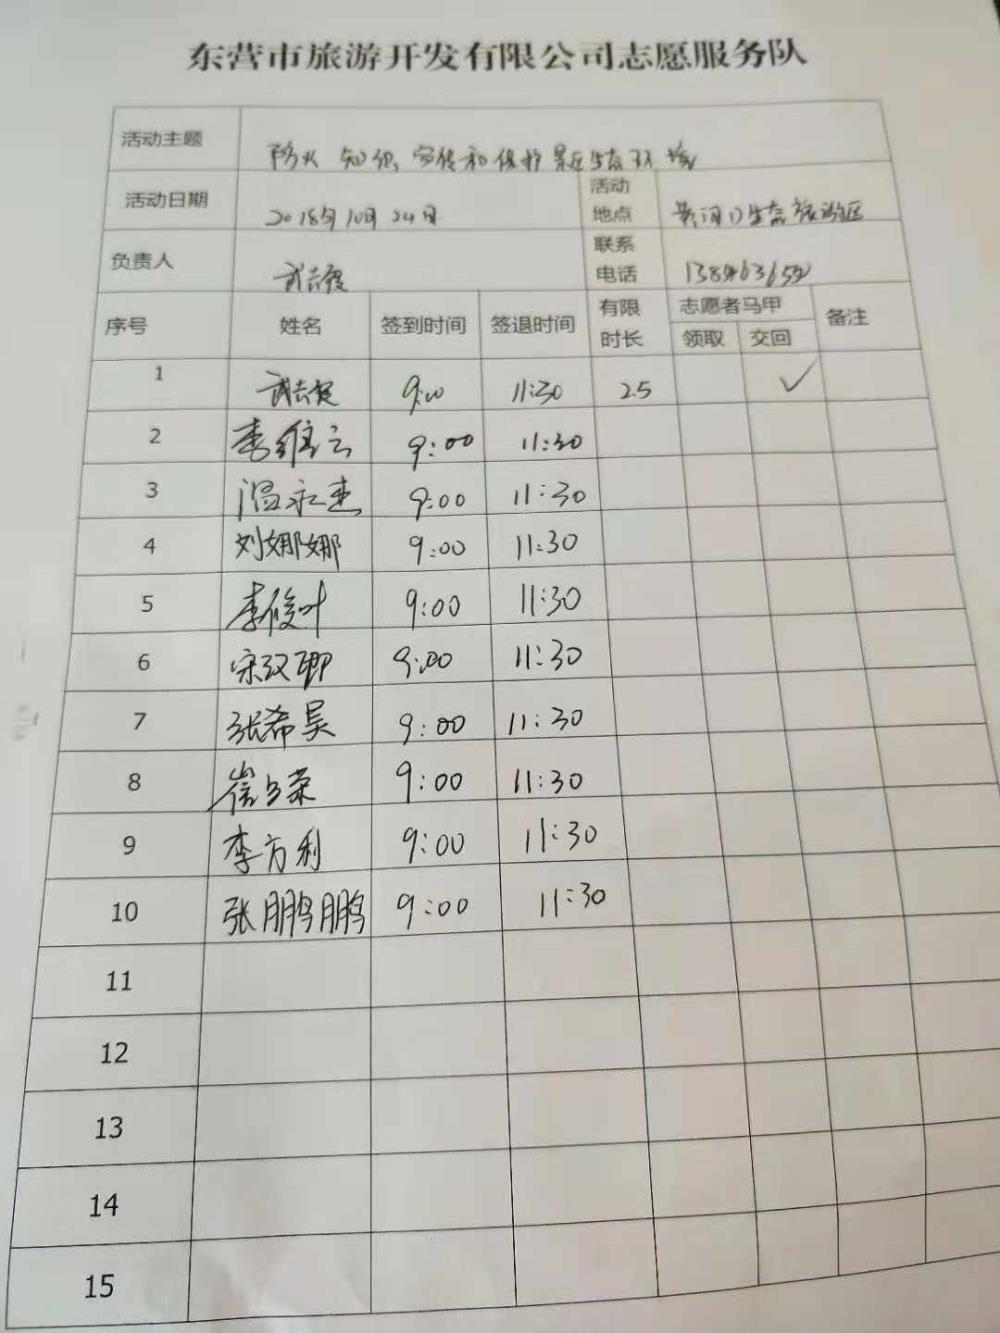 东营市旅游开发有限公司志愿服务队
活动主题 防火 知识 宣传和保护景区生态环境
活动日期 2018年10月24日 活动地点 黄河口生态旅游区
负责人 联系电话
序号 姓名 签到时间 签退时间 有限时长 志愿者马甲 领取 交回 备注
1 9:00 11:30 2.5 ✓
2 李维云 9:00 11:30
3 温永杰 9:00 11:30
4 刘娜娜 9:00 11:30
5 李俊叶 9:00 11:30
6 宋汉卿 9:00 11:30
7 张希昊 9:00 11:30
8 9:00 11:30
9 李方利 9:00 11:30
10 张鹏鹏 9:00 11:30
11
12
13
14
15